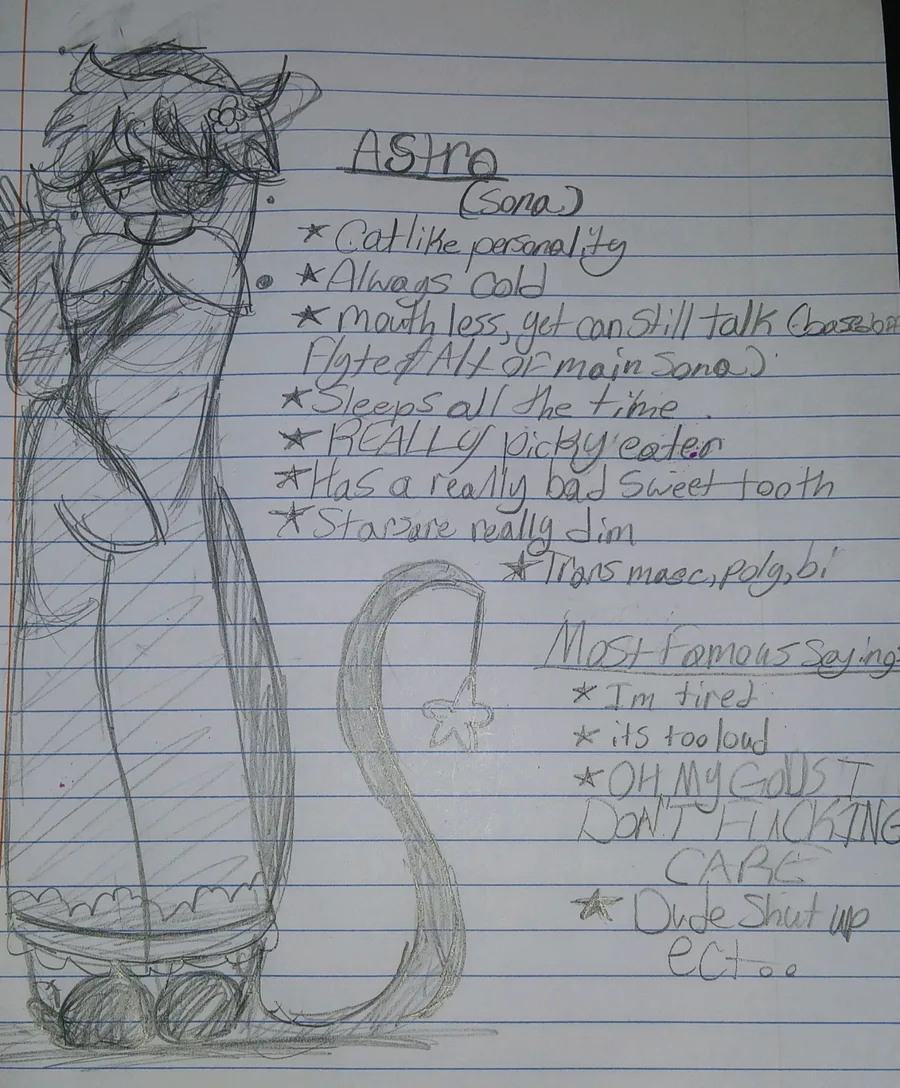 Astro
(sona)
★ Catlike personality
★ Always cold
★ mouthless, yet can still talk (based off
Flyte of Alt of main sona)
★ Sleeps all the time.
★ REALLY picky eater
★ Has a really bad sweet tooth
★ Stars are really dim
★ Trans masc, poly, bi
Most famous saying:
★ Im tired
★ its too loud
★ OH MY GODS I
DON'T FUCKING
CARE
★ Dude Shut up
ect..